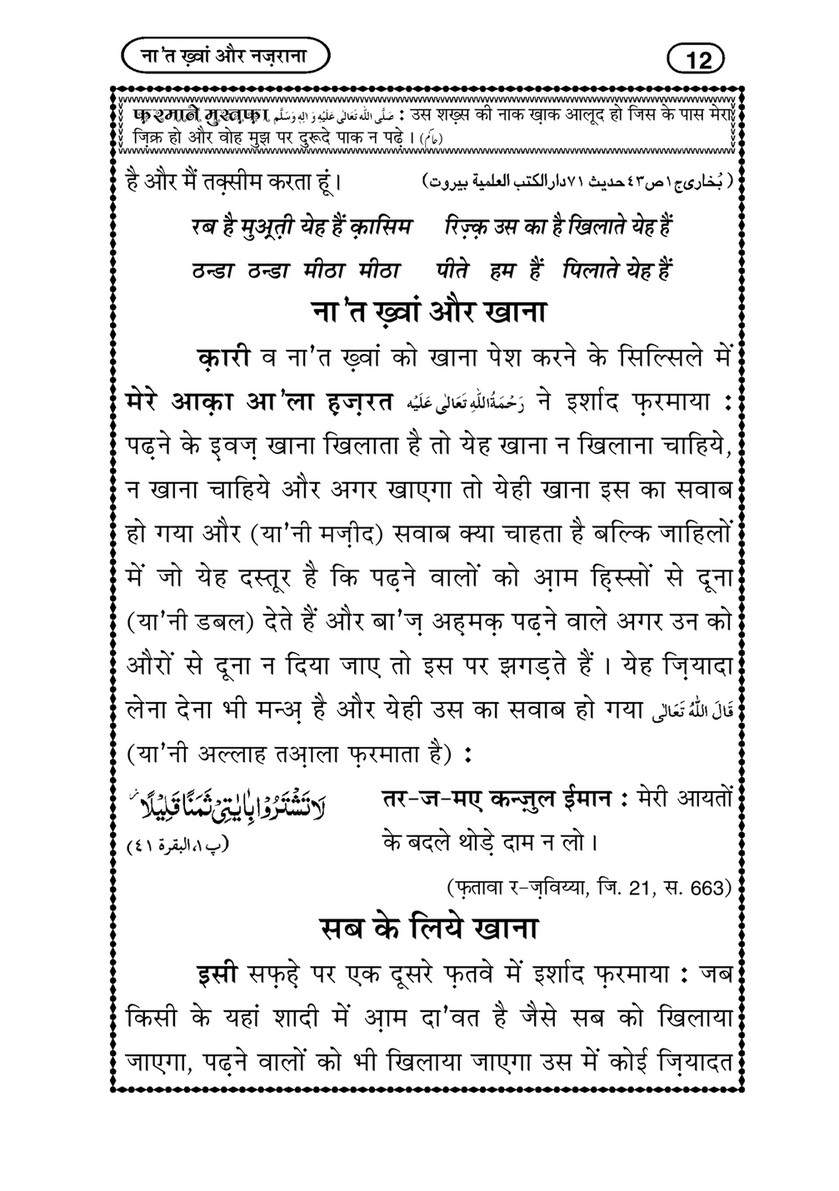 ना'त ख़्वां और नज़राना
12
फ़रमाने मुस्त़फ़ा صَلَّى اللهُ تَعَالٰى عَلَيْهِ وَاٰلِهٖ وَسَلَّم : उस शख़्स की नाक ख़ाक आलूद हो जिस के पास मेरा
ज़िक्र हो और वोह मुझ पर दुरूदे पाक न पढ़े । (حاکم)
है और मैं तक़्सीम करता हूं। (بُخاری ج۱ ص۴۳ حدیث ۷۱ دارالکتب العلمیة بیروت)
रब है मुअ़्त़ी येह हैं क़ासिम रिज़्क़ उस का है खिलाते येह हैं
ठन्डा ठन्डा मीठा मीठा पीते हम हैं पिलाते येह हैं
ना'त ख़्वां और खाना
क़ारी व ना'त ख़्वां को खाना पेश करने के सिल्सिले में
मेरे आक़ा आ'ला ह़ज़रत رَحْمَةُ اللهِ تَعَالٰى عَلَيْه ने इर्शाद फ़रमाया :
पढ़ने के इ़वज़ खाना खिलाता है तो येह खाना न खिलाना चाहिये,
न खाना चाहिये और अगर खाएगा तो येही खाना इस का सवाब
हो गया और (या'नी मज़ीद) सवाब क्या चाहता है बल्कि जाहिलों
में जो येह दस्तूर है कि पढ़ने वालों को आ़म ह़िस्सों से दूना
(या'नी डबल) देते हैं और बा'ज़ अह़मक़ पढ़ने वाले अगर उन को
औरों से दूना न दिया जाए तो इस पर झगड़ते हैं । येह ज़ियादा
लेना देना भी मन्अ़ है और येही उस का सवाब हो गया قَالَ اللهُ تَعَالٰى
(या'नी अल्लाह तआ़ला फ़रमाता है) :
لَا تَشْتَرُوْا بِاٰيٰتِيْ ثَمَنًا قَلِيْلًا तर-ज-मए कन्ज़ुल ईमान : मेरी आयतों
(پ ۱، البقرة ٤١) के बदले थोड़े दाम न लो ।
(फ़तावा र-ज़विय्या, जि. 21, स. 663)
सब के लिये खाना
इसी सफ़ह़े पर एक दूसरे फ़तवे में इर्शाद फ़रमाया : जब
किसी के यहां शादी में आ़म दा'वत है जैसे सब को खिलाया
जाएगा, पढ़ने वालों को भी खिलाया जाएगा उस में कोई ज़ियादत